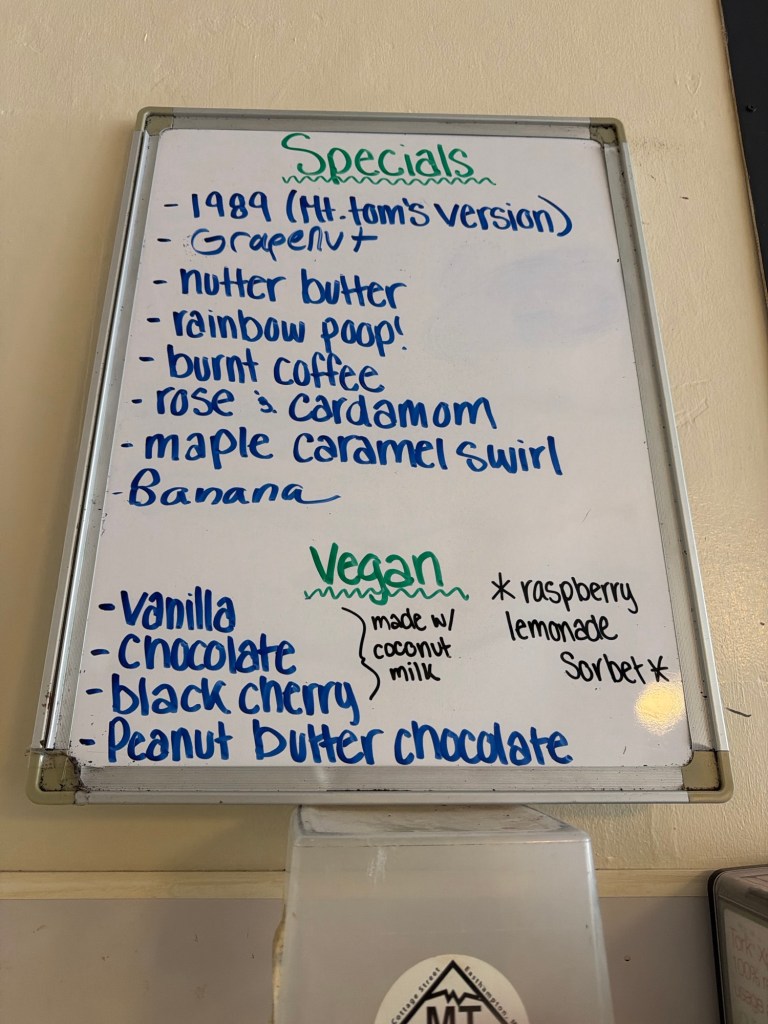 Specials
- 1989 (Mt. tom's version)
- Grapenut
- nutter butter
- rainbow poop!
- burnt coffee
- rose & cardamom
- maple caramel swirl
- Banana
Vegan
- vanilla
- chocolate
- black cherry
- Peanut butter chocolate
made w/
coconut
milk
* raspberry
lemonade
Sorbet *
Cottage Street
Easthampton,
MT